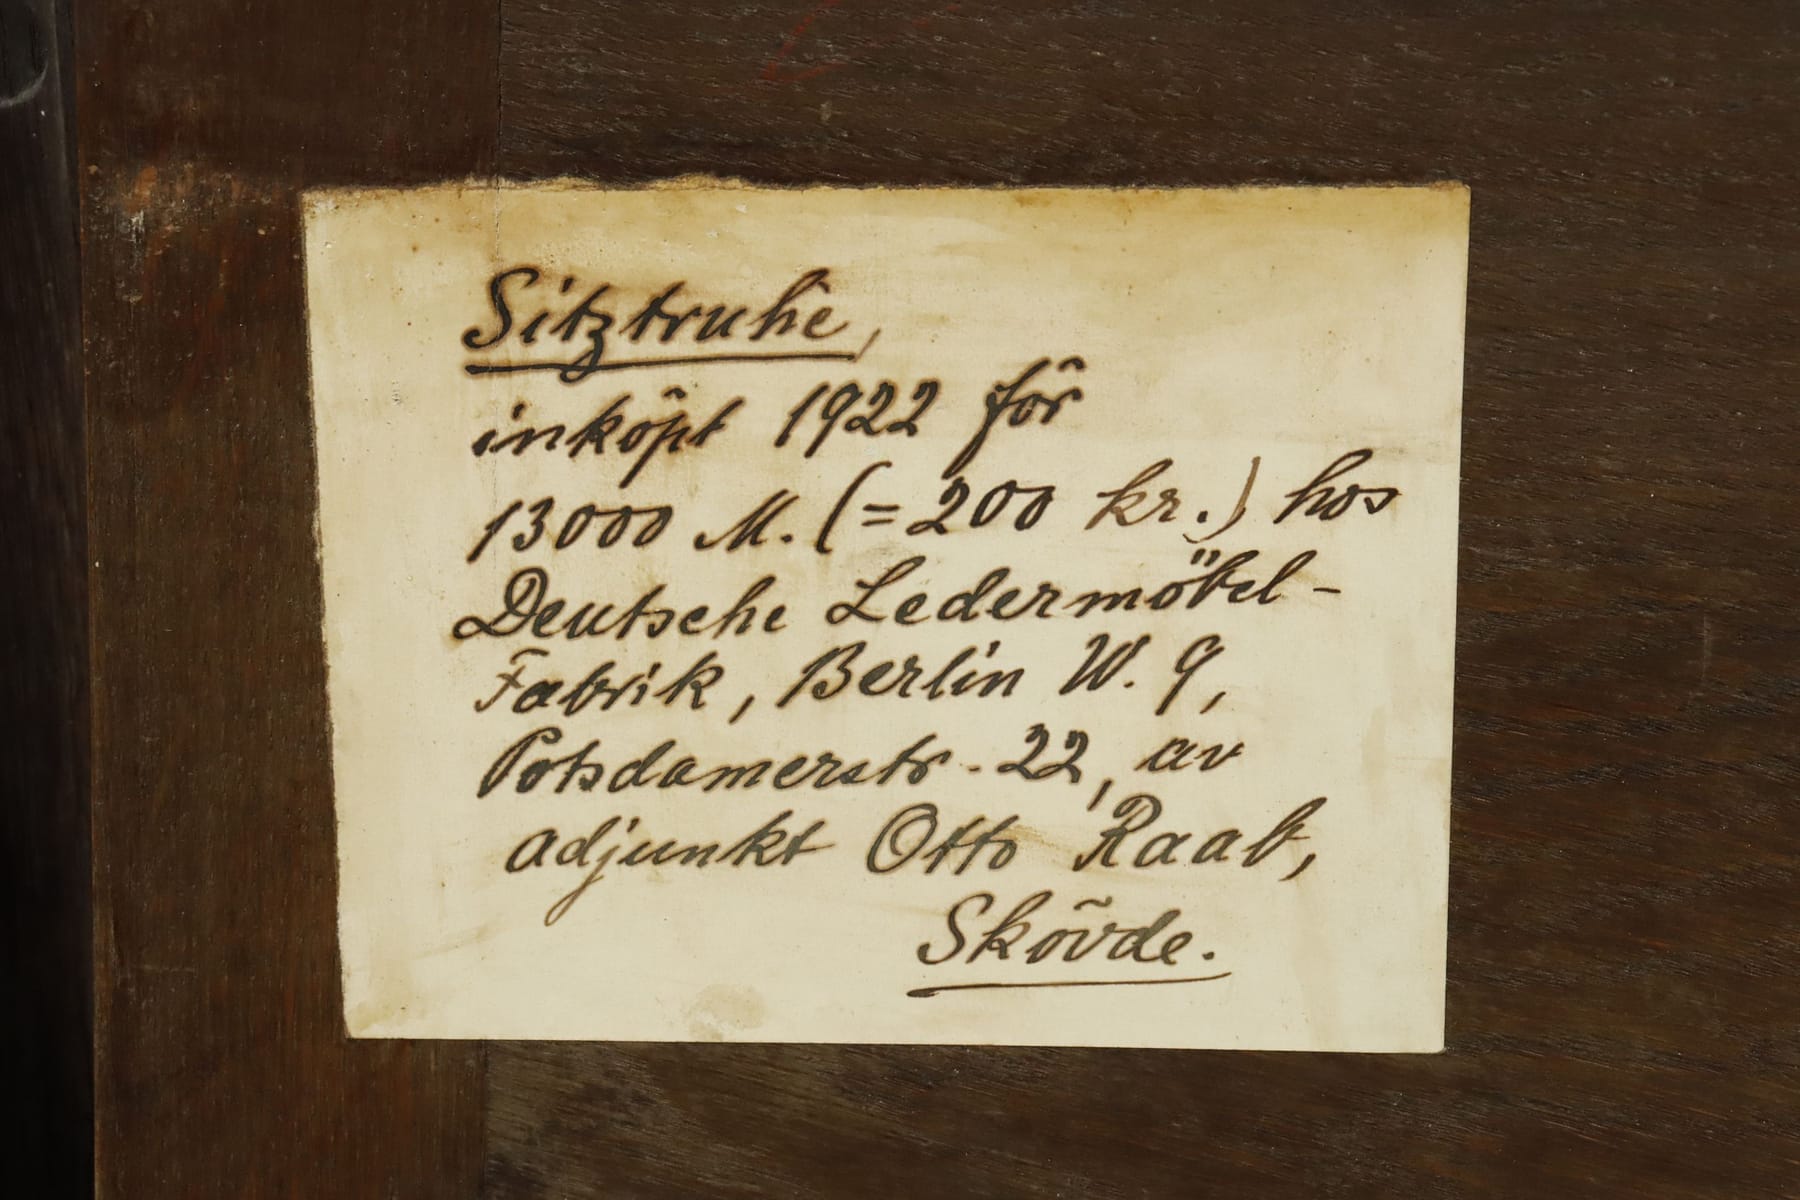 Sitztruhe,
inköpt 1922 för
13000 M. (= 200 kr.) hos
Deutsche Ledermöbel-
Fabrik, Berlin W. 9,
Potsdamerstr. 22, av
adjunkt Otto Raab,
Skövde.